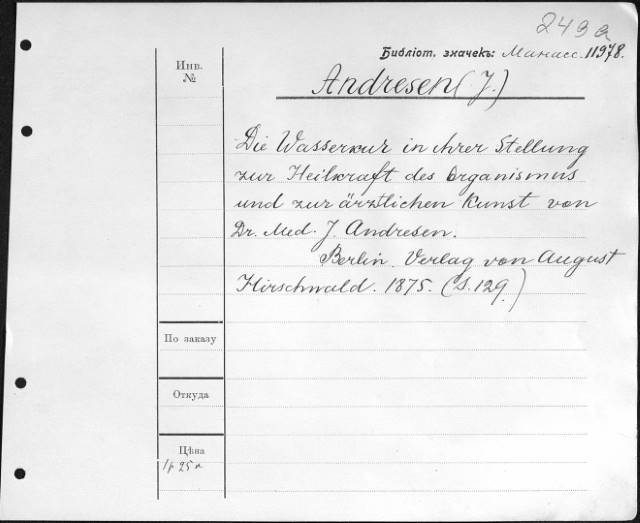 249a
Библіот. значекъ: Манасс. 11978.
Инв.
№
Andresen (J.)
Die Wasserkur in ihrer Stellung
zur Heilkraft des Organismus
und zur ärztlichen Kunst von
Dr. Med. J. Andresen.
Berlin. Verlag von August
Hirschwald. 1875. (S. 129.)
По заказу
Откуда
Цѣна
1р 25к